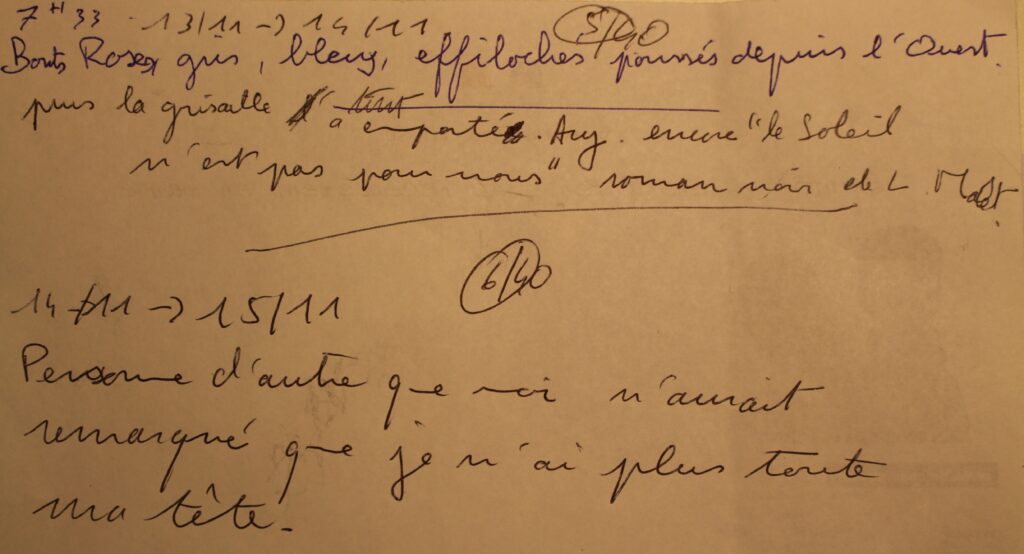 7H33 - 13/11 -> 14/11 5/40
Bouts Roses, gris, bleus, effilochés poussés depuis l'Ouest.
puis la grisaille tout
a emporté. Auj. encore "le Soleil
n'est pas pour nous" roman noir de L. Malet.
6/40
14/11 -> 15/11
Personne d'autre que moi n'aurait
remarqué que je n'ai plus toute
ma tête.